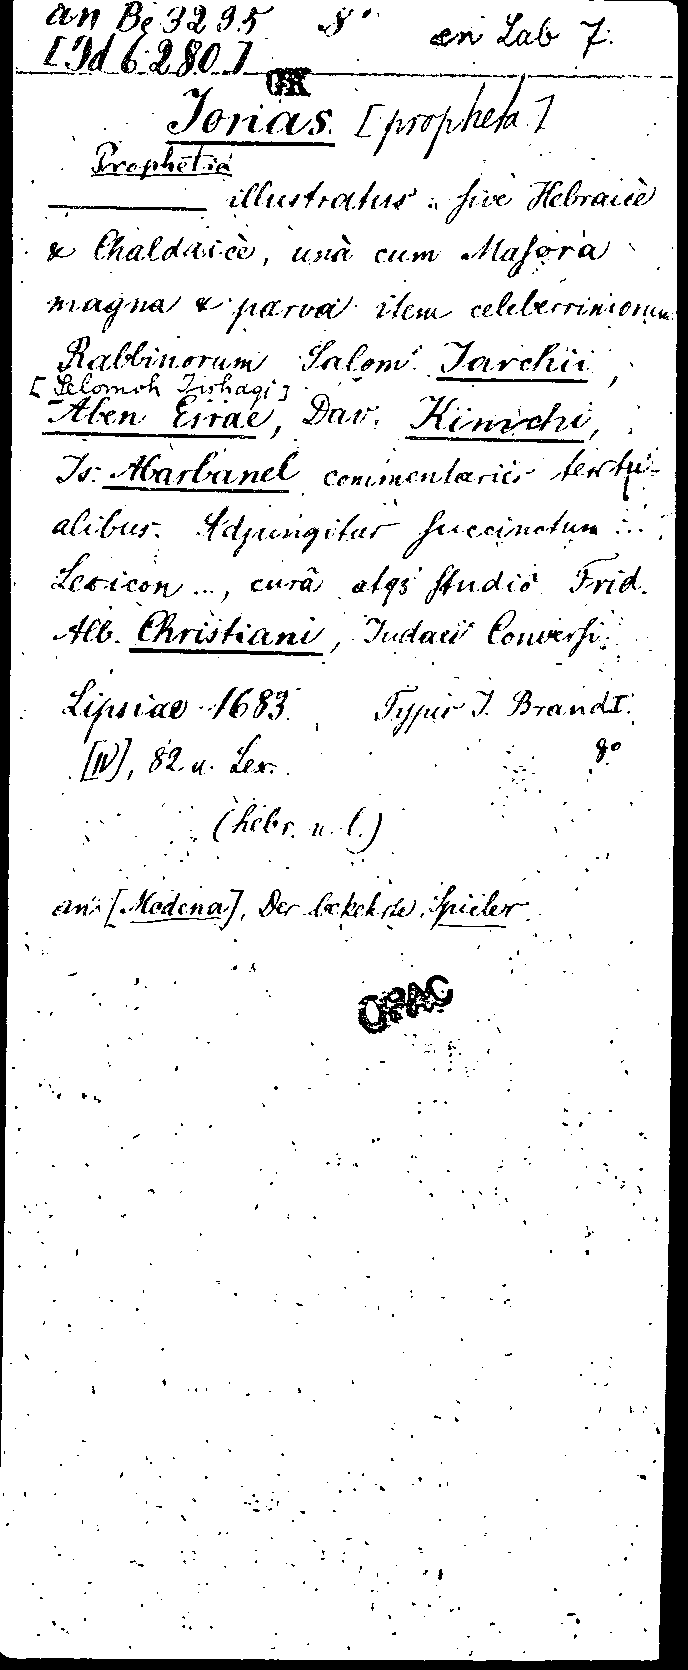 an Be 3295 8° an Lab 7.
[Id 6280]
GK
Jonas. [propheta]
Prophetia
——— illustratus. sive Hebraicè
& Chaldaicè, unà cum Masora
magna & parva item celeberrimorum
Rabbinorum Salom. Jarchii,
[Selomoh Jishaqi]
Aben Esrae, Dav. Kimchi,
Is. Abarbanel commentariis textu-
alibus. Adjungitur succinctum ...
Lexicon ..., curâ atqs studio Frid.
Alb. Christiani, Judaei Conversi.
Lipsiae 1683. Typis J. Brandi.
[IV], 82 u. Lex. 8°
(hebr. u. l.)
an: [Modena], Der bekehrte Spieler
OPAC